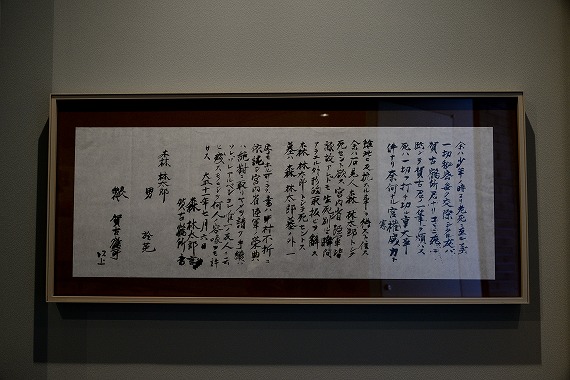 余ハ少年ノ時ヨリ老死ニ至ルマデ
一切秘密無ク交際シタル友ハ
賀古鶴所君ナリ コヽニ死ニ
臨ンテ賀古君ノ一筆ヲ煩ハス
死ハ一切ヲ打チ切ル重大事
件ナリ 奈何ナル官憲威力ト
雖此ニ反抗スル事ヲ得スト信ス
余ハ石見人 森 林太郎トシテ
死セント欲ス 宮内省陸軍皆
縁故アレドモ 生死別ルヽ瞬間
アラユル外形的取扱ヒヲ辭ス
森 林太郎トシテ死セントス
墓ハ 森 林太郎墓ノ外一
字モホル可ラス 書ハ中村不折ニ
依託シ宮内省陸軍ノ榮典
ハ絶對ニ取リヤメヲ請フ 手續ハ
ソレゾレアルベシ コレ唯一ノ友人ニ云
ヒ殘スモノニシテ何人ノ容喙ヲモ許
サス 大正十一年七月六日
森 林太郎言
賀古鶴所書
森 林太郎
男 於菟
以上